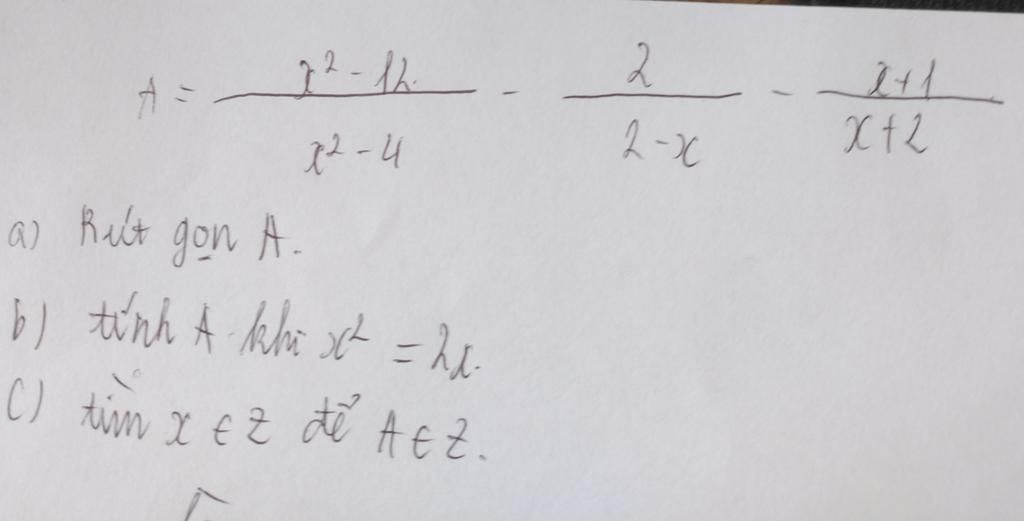 A = \frac{x^2 - 12}{x^2 - 4} - \frac{2}{2 - x} - \frac{x + 1}{x + 2}
a) Rút gọn A.
b) tính A khi x^2 = 2x.
c) tìm x ∈ Z để A ∈ Z.